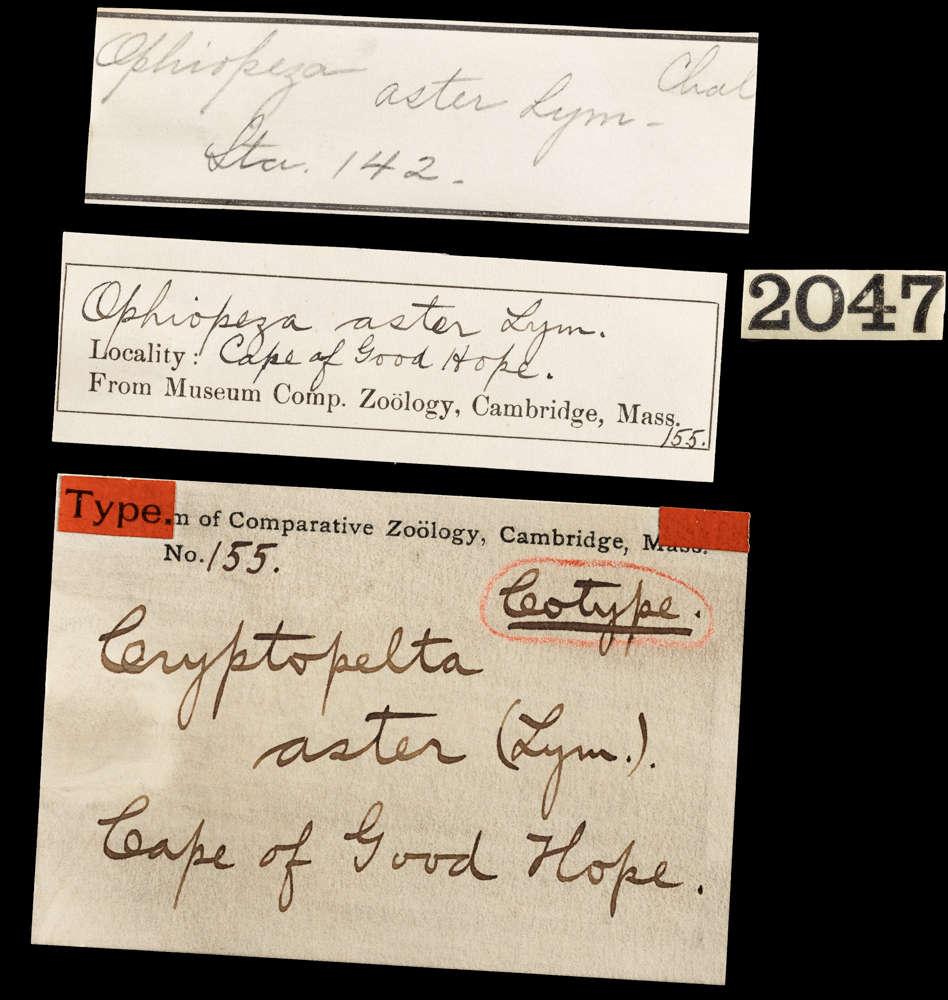 Ophiopeza aster Lym- Chal
Sta. 142.
Ophiopeza aster Lym.
Locality: Cape of Good Hope.
From Museum Comp. Zoölogy, Cambridge, Mass.
155.
2047
Type.
m of Comparative Zoölogy, Cambridge, Mass.
No. 155.
Cotype.
Cryptopelta
aster (Lym.).
Cape of Good Hope.